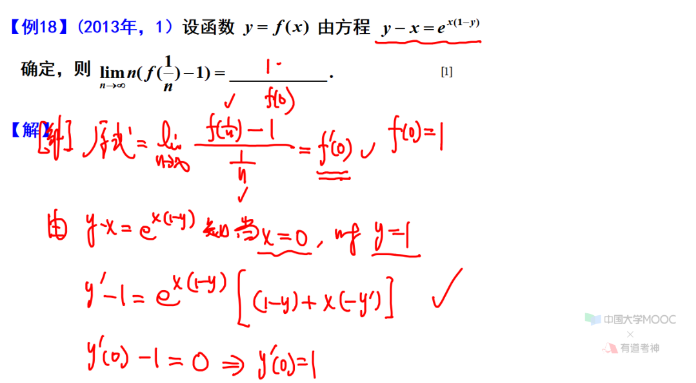 【例18】(2013年，1) 设函数 y = f(x) 由方程 y − x = e^{x(1−y)}
确定，则 lim_{n→∞} n(f(1/n) − 1) = 1 . [1]
f(0)
【解】
[解] 原式 = lim_{n→∞} (f(1/n) − 1)/(1/n) = f'(0) ✓ f(0) = 1
由 y−x = e^{x(1−y)} 知当 x = 0, 时 y = 1
y' − 1 = e^{x(1−y)} [(1−y) + x(−y')] ✓
y'(0) − 1 = 0 ⇒ y'(0) = 1
中国大学MOOC
×
有道考神